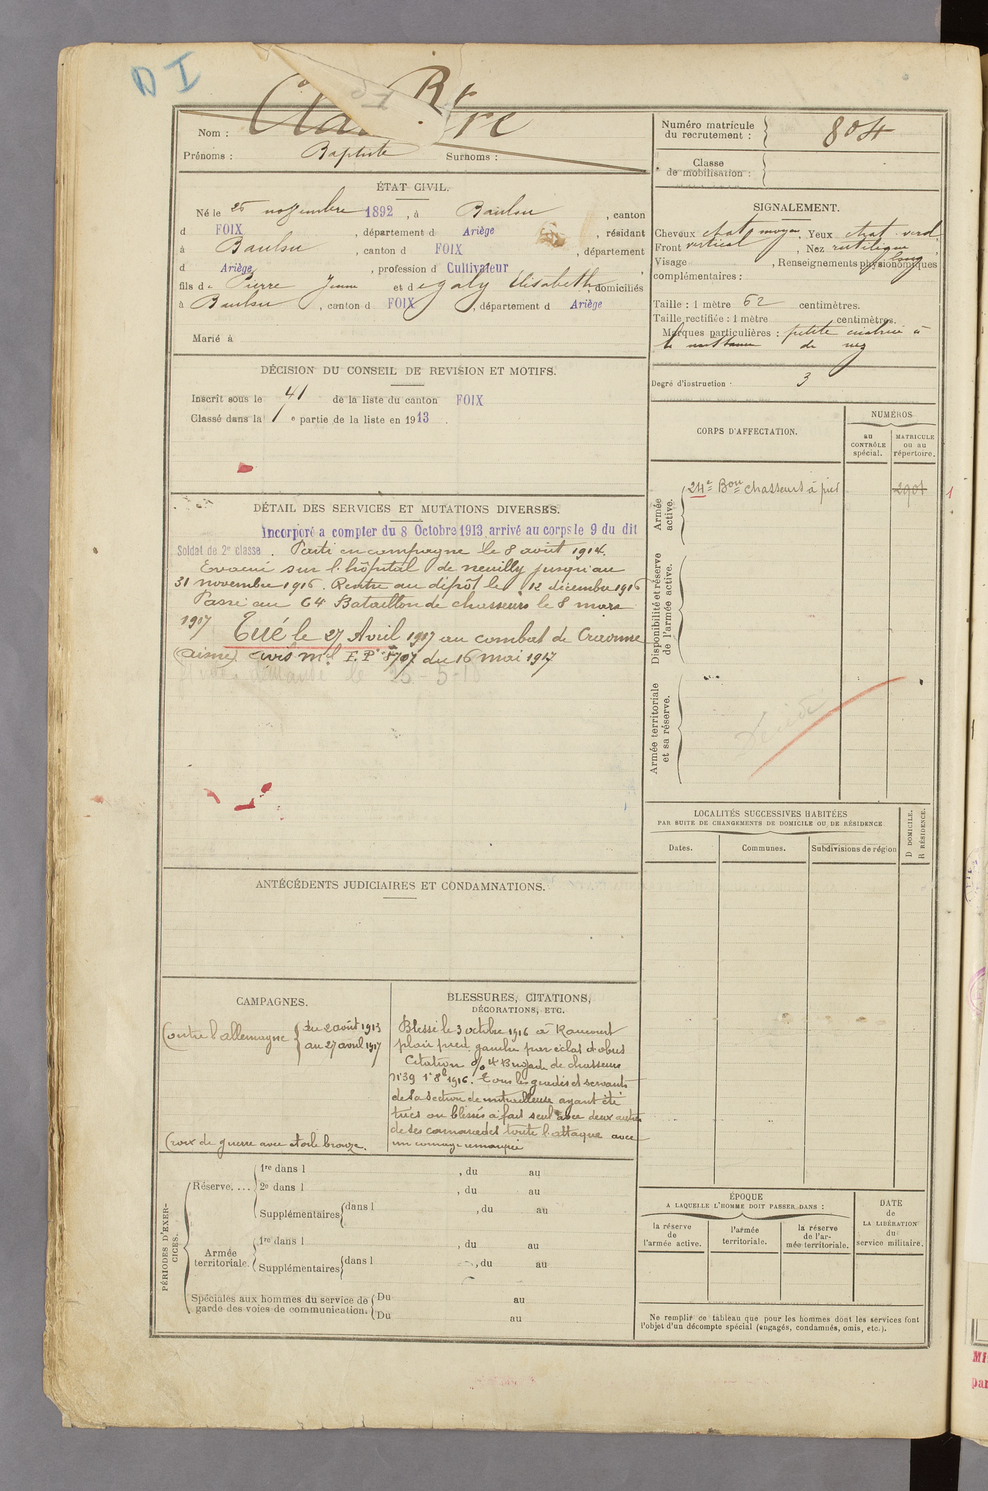 D I
Nom :
Prénoms : Baptiste Surnoms :
Numéro matricule
du recrutement : 804
Classe
de mobilisation :
ÉTAT CIVIL.
Né le 25 novembre 1892, à Baulou, canton
d FOIX, département d Ariège, résidant
à Baulou, canton d FOIX, département
d Ariège, profession d Cultivateur,
fils de Pierre Jean et de Galy Élisabeth, domiciliés
à Baulou, canton d FOIX, département d Ariège
Marié à
SIGNALEMENT.
Cheveux chat moyen, Yeux chat verd.
Front vertical, Nez rectiligne
Visage long, Renseignements physionomiques
complémentaires :
Taille : 1 mètre 62 centimètres.
Taille rectifiée : 1 mètre centimètres.
Marques particulières : petite cicatrice à
la naissance du nez
Degré d'instruction : 3
DÉCISION DU CONSEIL DE REVISION ET MOTIFS.
Inscrit sous le n° 41 de la liste du canton FOIX
Classé dans la 1e partie de la liste en 1913.
DÉTAIL DES SERVICES ET MUTATIONS DIVERSES.
Incorporé a compter du 8 Octobre 1913 arrivé au corps le 9 du dit
Soldat de 2e classe. Parti en campagne le 8 août 1914.
Evacué sur l'hôpital de Neuilly jusqu'au
31 novembre 1916. Rentre au dépôt le 12 décembre 1916
Passé au 64 Bataillon de chasseurs le 8 mars
1917 Tué le 27 Avril 1917 au combat de Craonne
(Aisne) avis mel F.P. 8707 du 16 mai 1917
CORPS D'AFFECTATION.
NUMÉROS
au
CONTRÔLE
spécial.
MATRICULE
OU AU
répertoire.
Armée
active.
24e Bon Chasseurs à pied
2901
Disponibilité et réserve
de l'armée active.
Armée territoriale
et sa réserve.
LOCALITÉS SUCCESSIVES HABITÉES
PAR SUITE DE CHANGEMENTS DE DOMICILE OU DE RÉSIDENCE
Dates. Communes. Subdivisions de région
D DOMICILE.
R RÉSIDENCE.
ANTÉCÉDENTS JUDICIAIRES ET CONDAMNATIONS.
CAMPAGNES.
Contre l'allemagne du 2 août 1913
au 27 avril 1917
Croix de guerre avec étoile bronze.
BLESSURES, CITATIONS,
DÉCORATIONS, ETC.
Blessé le 3 octobre 1916 à Rancourt
plaie pied gauche par éclat d'obus
Citation o/o 4e Brigade de chasseurs
n°39 1er 8bre 1916. Tous les gradés et servants
de sa section de mitrailleuse ayant été
tués ou blessés a fait seul avec deux autres
de ses camarades toute l'attaque avec
un courage remarqué
PÉRIODES D'EXERCICES.
Réserve. ... 1re dans l , du au
2e dans l , du au
Supplémentaires dans l , du au
Armée
territoriale. 1re dans l , du au
Supplémentaires dans l , du au
Spéciales aux hommes du service de
garde des voies de communication. Du au
Du au
ÉPOQUE
A LAQUELLE L'HOMME DOIT PASSER DANS :
la réserve
de
l'armée active.
l'armée
territoriale.
la réserve
de l'ar-
mée territoriale.
DATE
de
LA LIBÉRATION
du
service militaire.
Ne remplir ce tableau que pour les hommes dont les services font
l'objet d'un décompte spécial (engagés, condamnés, omis, etc.).